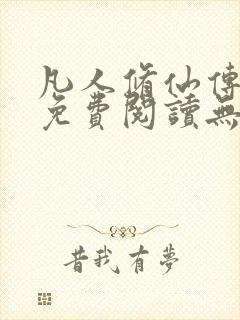 凡人脩仙傳
免費閱讀無
昔我有夢